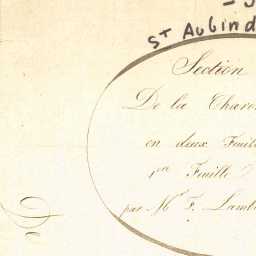 St Aubin d
Section
De la Charo
en deux Feuil
1re Feuille
par Mr F. Lamb
De